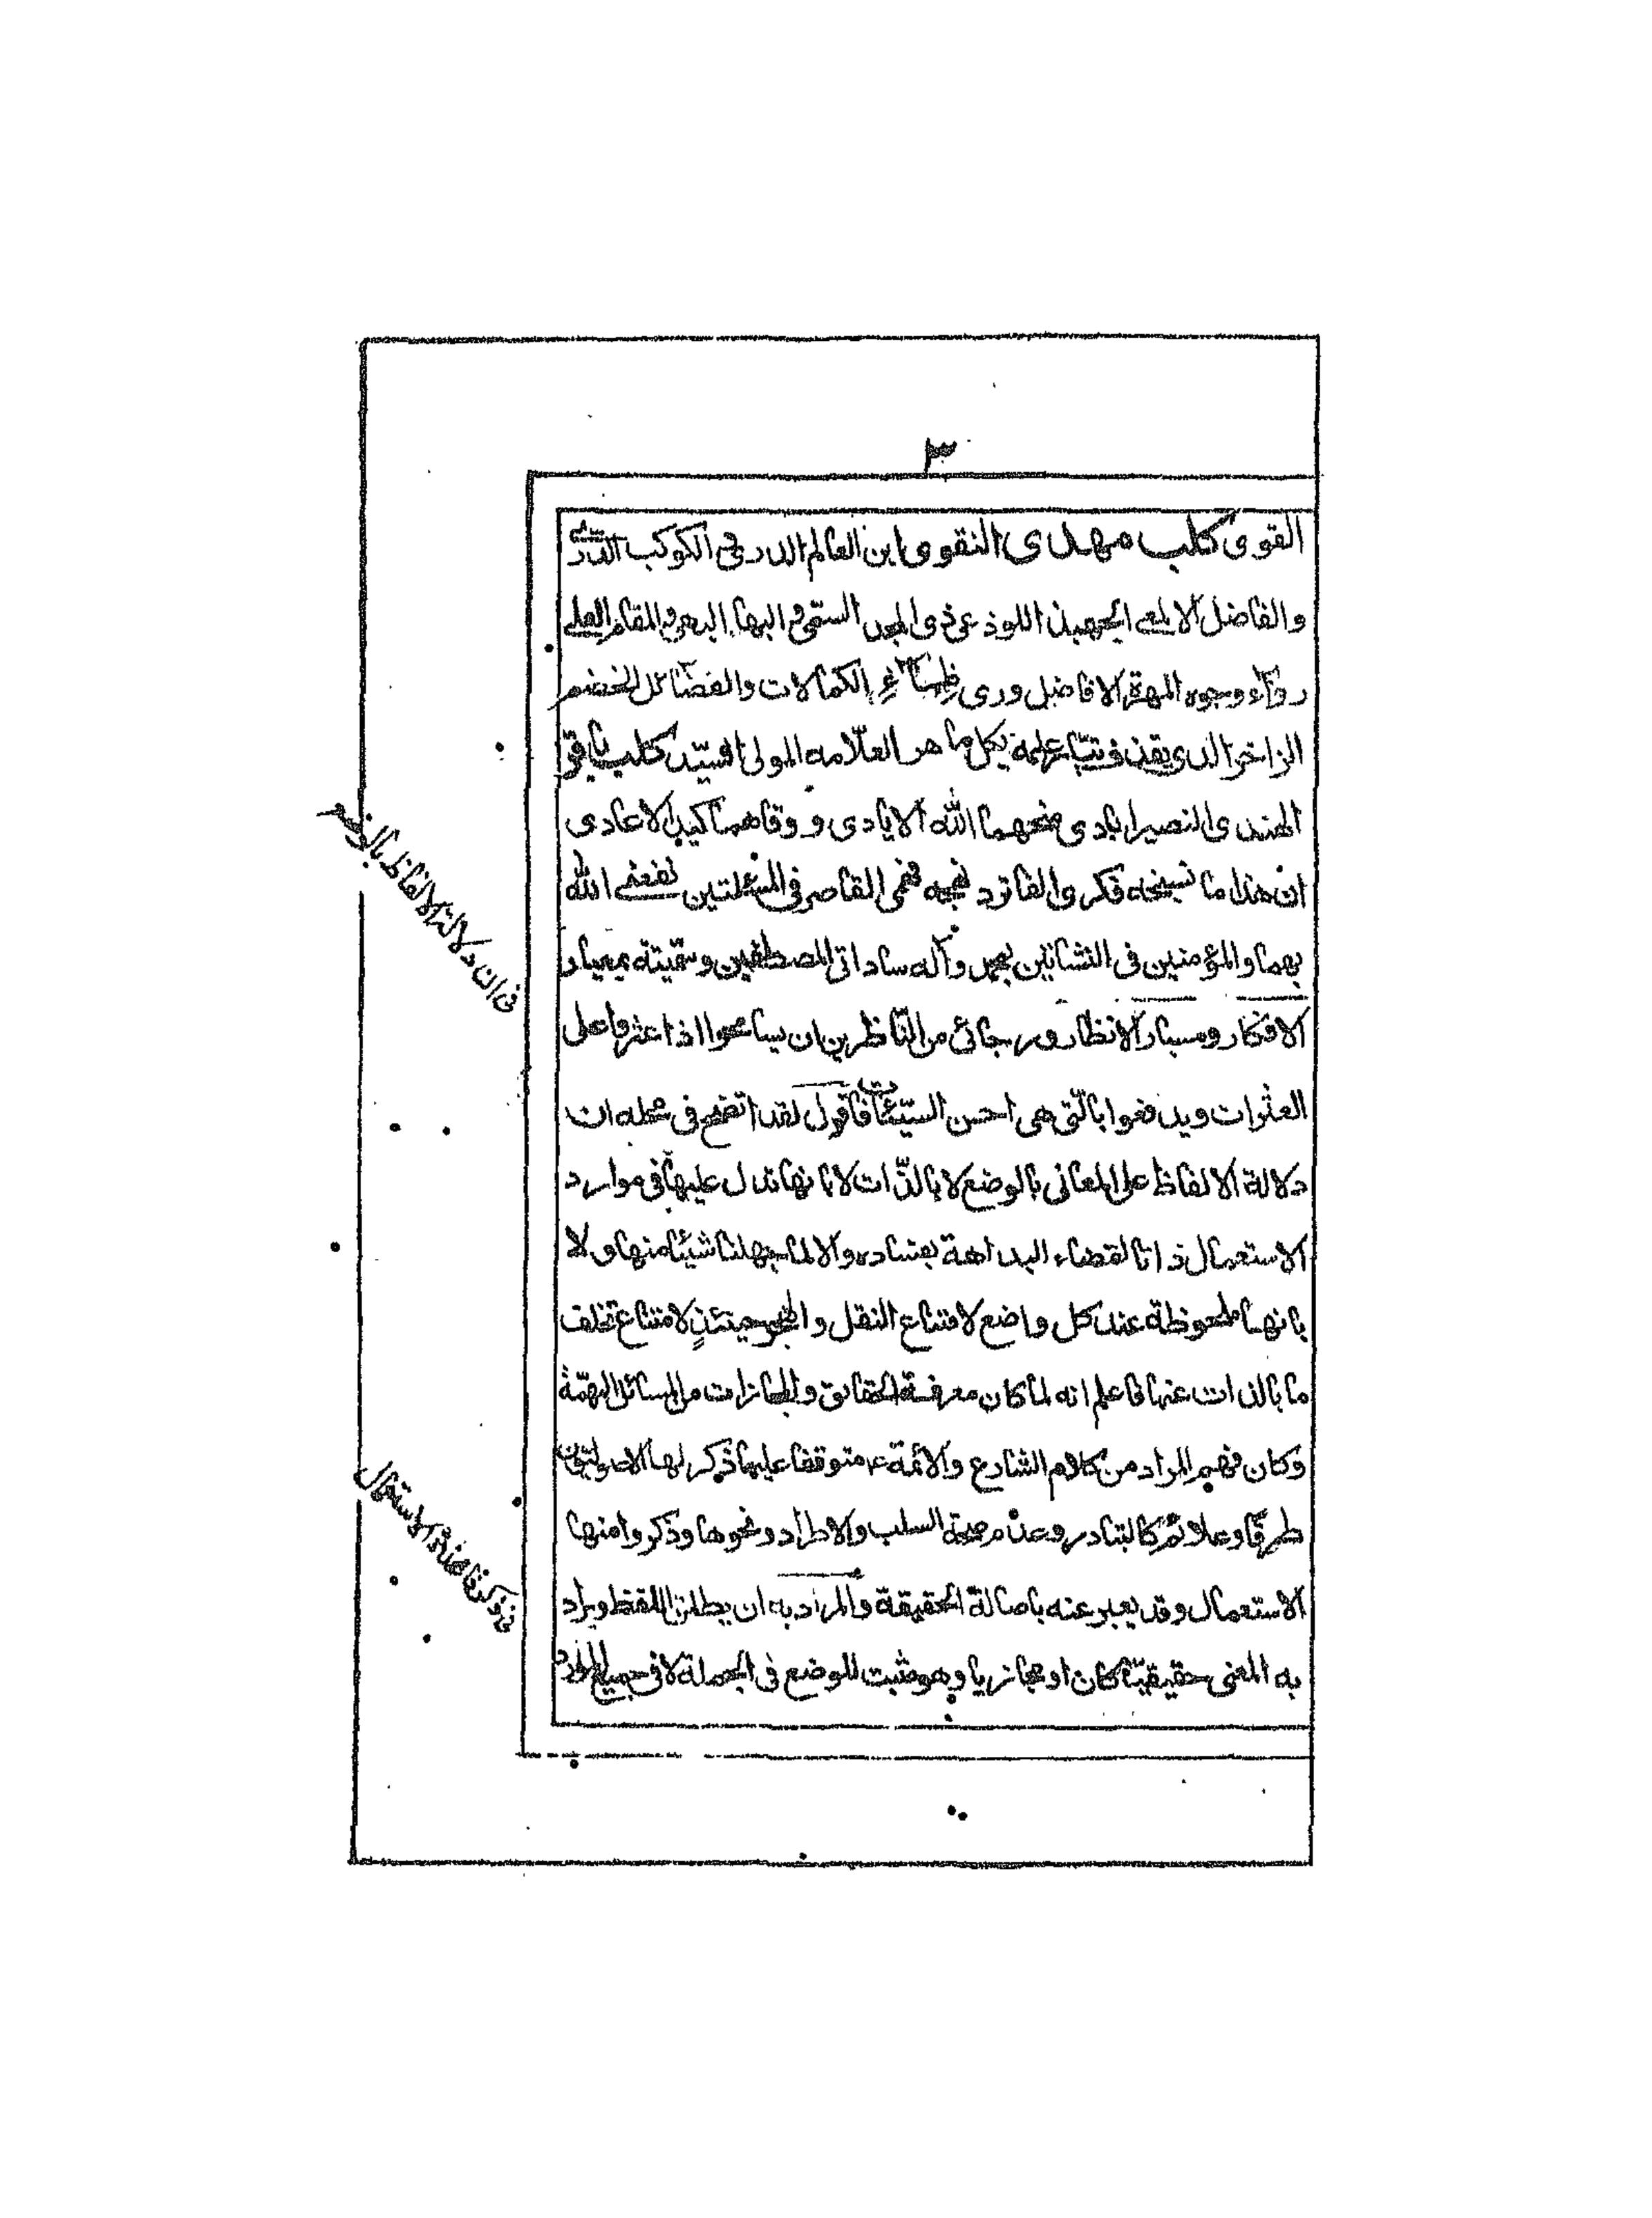 ٣
القوى كلب مهدى النقوى ابن العالم الدرى الكوكب الدرّى
والفاضل الالمعى الجهبذ اللوذعى ذى المجد السنى و البهاء البهى و المقام العلى
رواء وجوه المهرة الافاضل ورى ظماء الكمالات والفضائل الخضم
الزاخر الذى يقذف بكل ماهر العلّامه المولى السيّد كلب باقر
الهندى النصيرابادى منحهما الله الايادى و وقاهما كيد الاعادى
ان هذا ما نسجه فكرى الفاتر و نهجه فهمى القاصر فى المسئلتين نفعنى الله
بهما والمؤمنين فى النشاتين بمحمد وآله ساداتى المصطفين وسمّيته بمعيار
الافكار ومسبار الانظار ورجائى من النّاظرين ان يسامحوا اذا عثروا على
العثرات ويدفعوا بالّتى هى احسن السيّئات فاقول لقد اتضح فى محله ان
دلالة الالفاظ على المعانى بالوضع لا بالذّات لا بانها تدل عليها فى موارد
الاستعمال ذاتا لقضاء البداهة بفساده والا لما جهلنا شيئا منها ولا
بانها ملحوظة عند كل واضع لامتناع النقل و حينئذٍ لامتناع تخلف
ما بالذات عنها فاعلم انه لما كان معرفة الحقايق والمجازات من المسائل المهمّة
وكان فهم المراد من كلام الشارع والائمّة ع متوقفا عليها ذكر لها الاصوليّون
طرقا وعلائم كالتبادر وعدم صحة السلب والاطراد ونحوها وذكروا منها
الاستعمال وقد يعبر عنه باصالة الحقيقة والمراد به ان يطلق اللفظ ويراد
به المعنى حقيقيّا كان او مجازيا وهو مثبت للوضع فى الجملة لا فى جميع الموارد
فى ان دلالة الالفاظ بالوضع
فى ذكر قاعدة الاستعمال